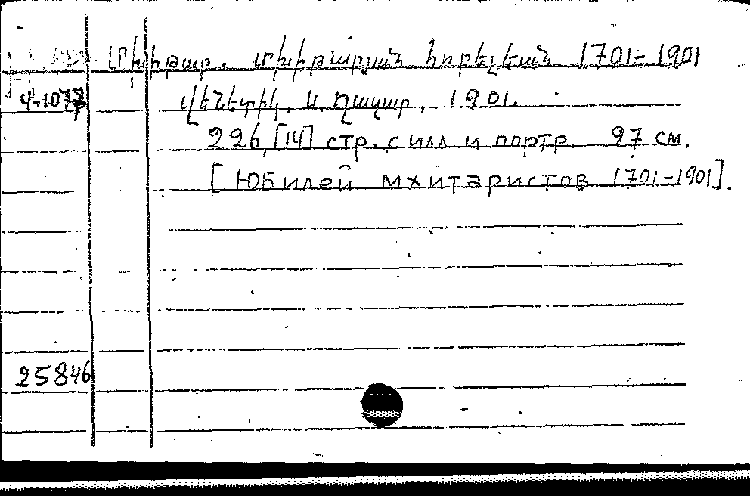 Մխիթար. Մխիթարյան հոբելեան 1701-1901
4-1077 Վենետիկ. Ս. Ղազար, 1901.
226, [14] стр. с илл и портр. 27 см.
[Юбилей мхитаристов 1701-1901].
25846